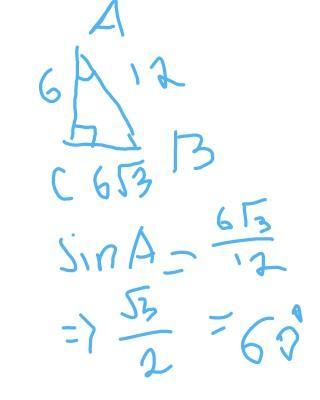 A
6 12
C 6√3 B
sin A = 6√3/12
⇒ √3/2 = 60°